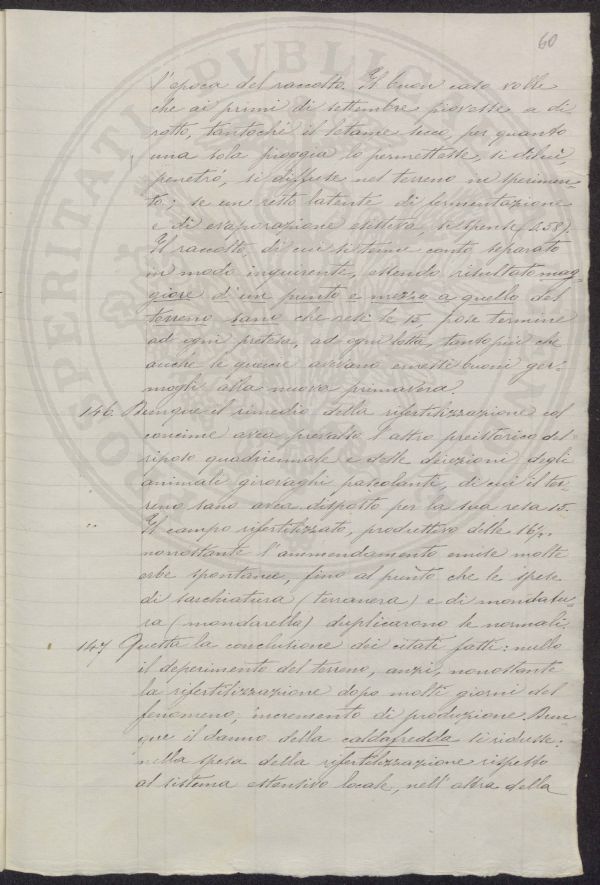 60
l'epoca del raccolto. Il buon caso volle
che ai primi di settembre piovesse a di-
rotto, tantoché il letame secco, per quanto
una sola pioggia lo permettesse, si diluì,
penetrò, si diffuse nel terreno in sperimen-
to; se un resto latente di fermentazione
e di evaporazione esisteva, si spense (§.58).
Il raccolto, di cui si tenne conto separato
in modo inquirente, essendo risultato mag-
giore di un punto e mezzo a quello del
terreno sano che rese le 15, pose termine
ad ogni pretesa, ad ogni lotta, tanto più che
anche le querce aveano emesti buoni ger-
mogli alla nuova primavera.
146. Dunque il rimedio della rifertilizzazione col
concime avea prevalso l'altro preistorico del
riposo quadriennale e delle deiezioni degli
animali girovaghi pascolante, di cui il ter-
reno sano avea disposto per la sua resa 15.
Il campo rifertilizzato, produttivo delle 16½,
nonostante l'ammendamento emise molte
erbe spontanee, fino al punto che le spese
di sarchiatura (terranera) e di mondatu-
ra (mondarella) duplicarono le normali.
147 Questa la conclusione dei citati fatti: nullo
il deperimento del terreno, anzi, nonostante
la rifertilizzazione dopo molti giorni del
fenomeno, incremento di produzione. Dun-
que il danno della caldafredda si ridusse:
nella spesa della rifertilizzazione rispetto
al sistema estensivo locale, nell'altra della